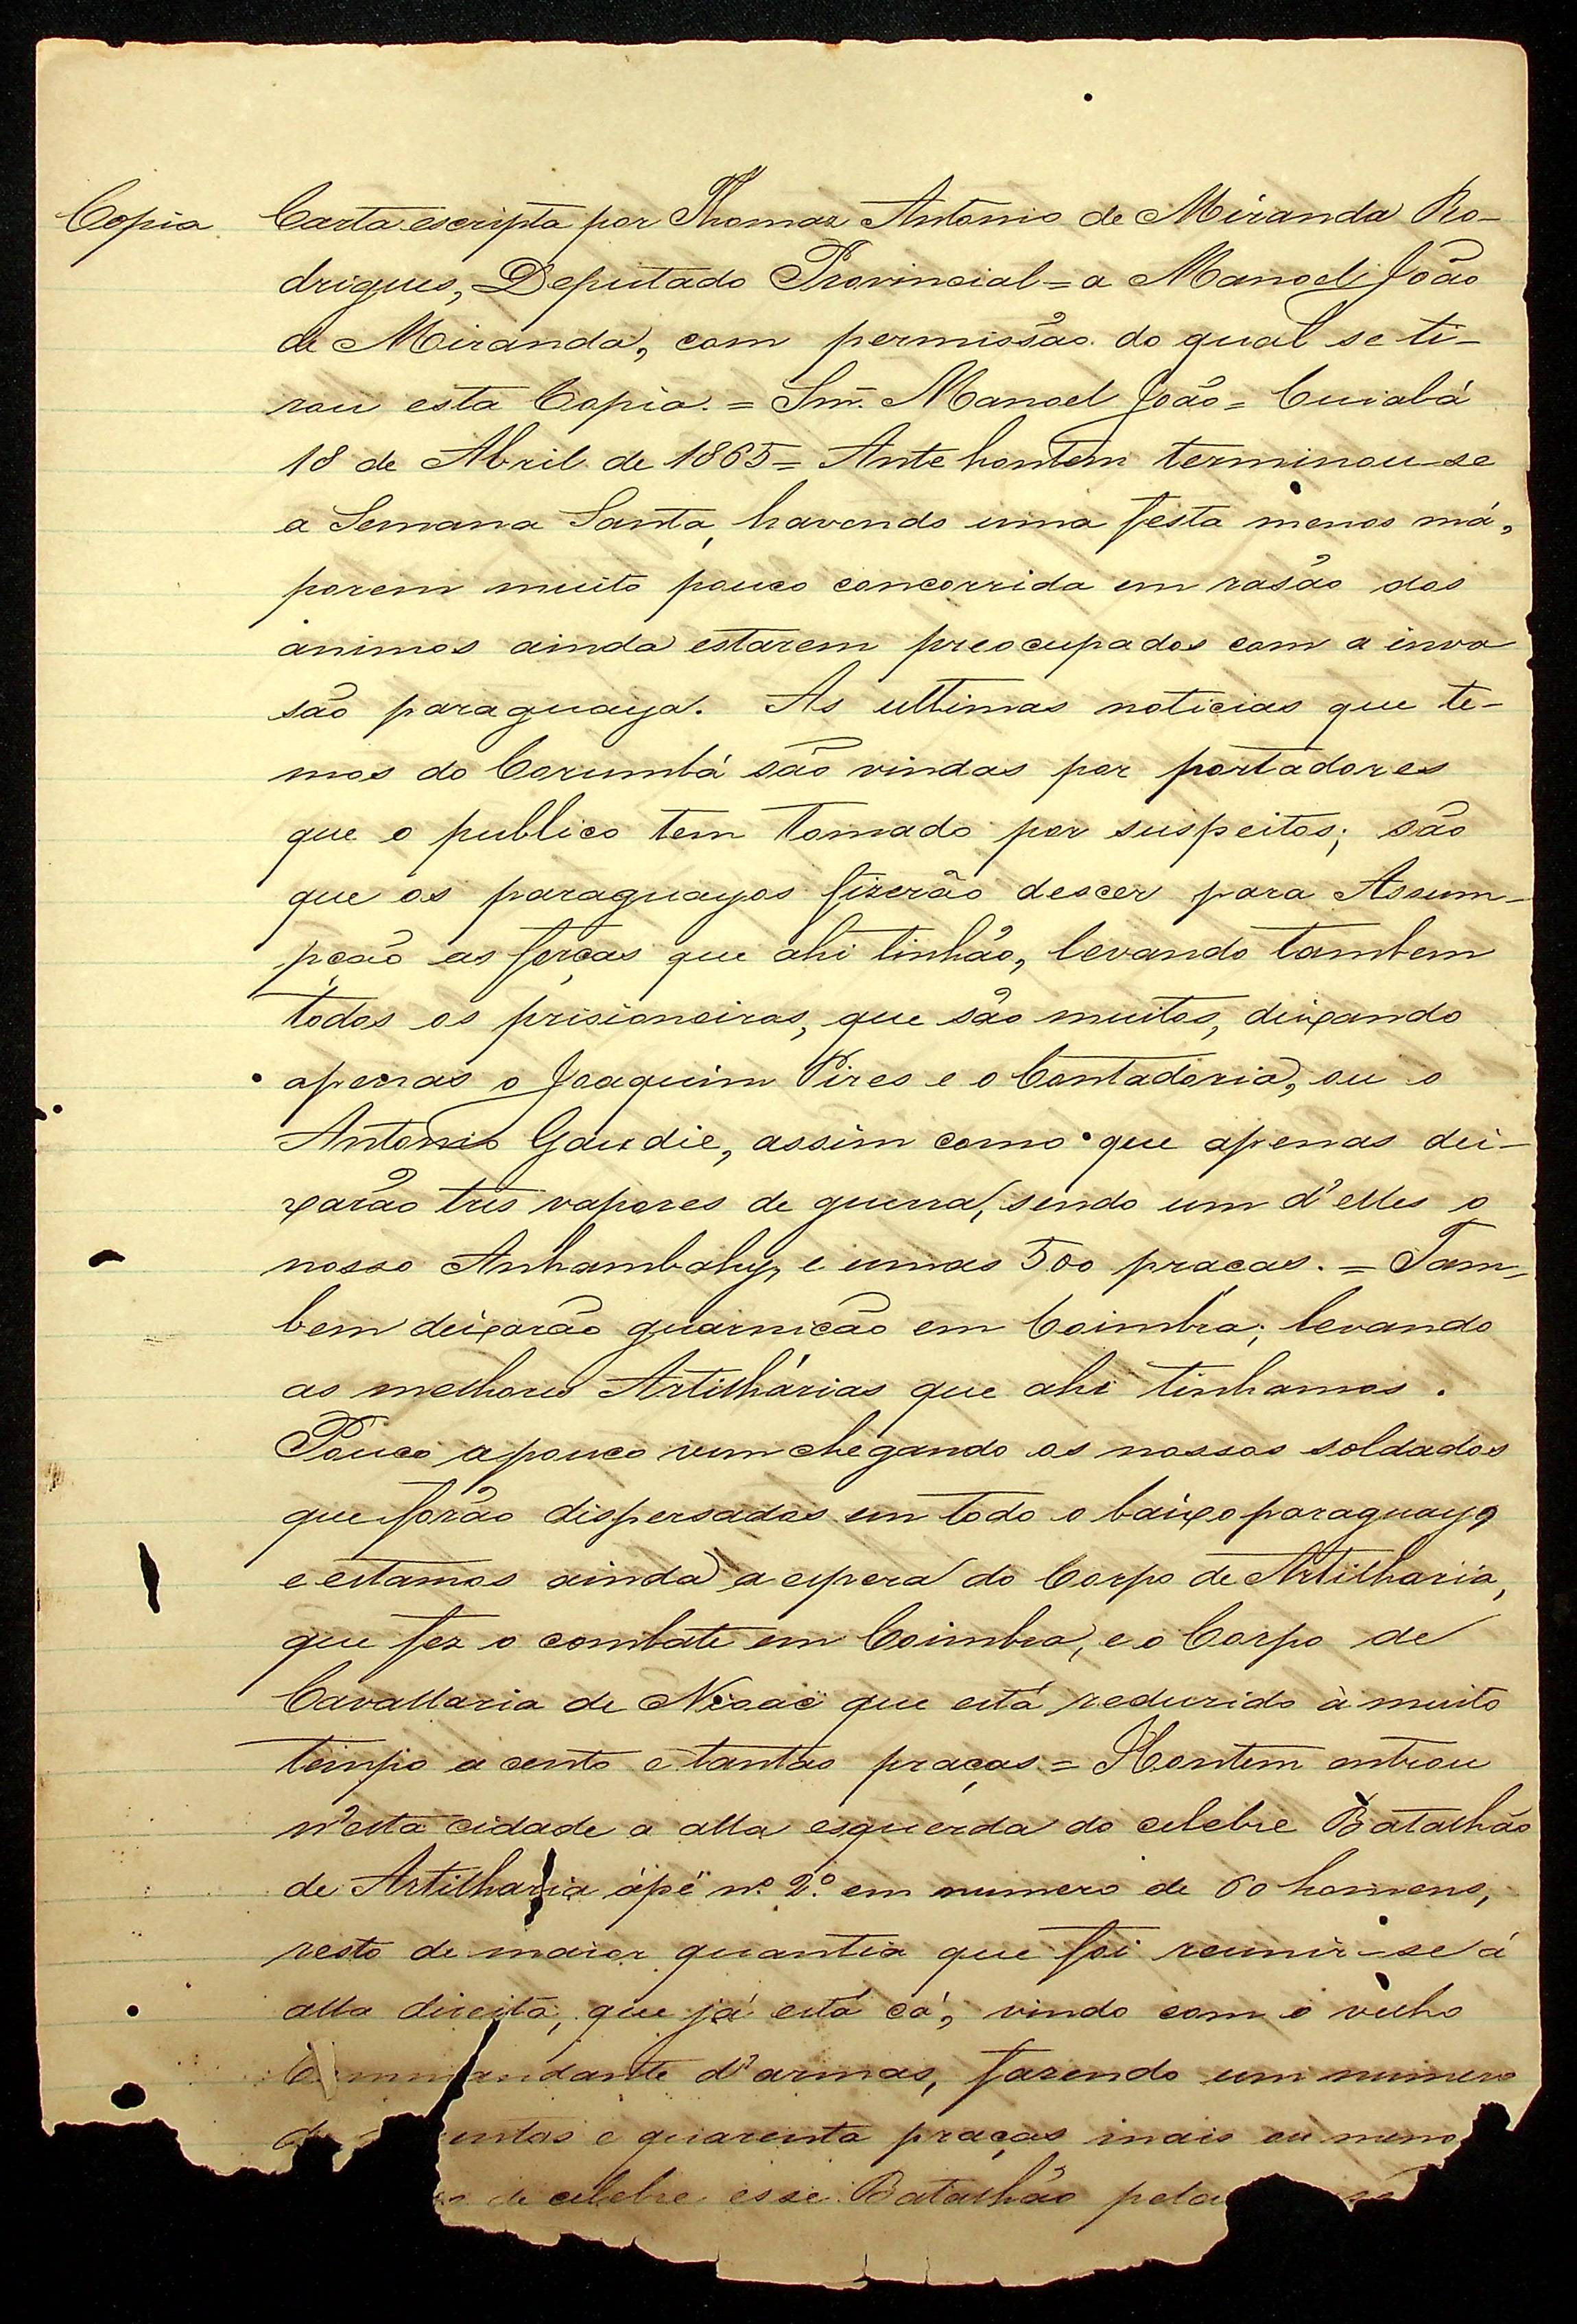 Copia Carta escripta por Thomaz Antonio de Miranda Ro-
drigues, Deputado Provincial = a Manoel João
de Miranda, com permissão do qual se ti-
rou esta Copia. = Snr. Manoel João = Cuiabá
18 de Abril de 1865 = Ante hontem terminou-se
a Semana Santa, havendo uma festa menos má,
porem muito pouco concorrida em rasão dos
animos ainda estarem preocupados com a inva
são paraguaya. As ultimas noticias que te-
mos do Corumbá são vindas por portadores
que o publico tem tomado por suspeitos; são
que os paraguayos fizerão descer para Assum-
pção as forças que ahi tinhão, levando tambem
todos os prisioneiros, que são muitos, deixando
apenas o Joaquim Pires e o Contadoria, ou o
Antonio Gaudie, assim como que apenas dei-
xarão tres vapores de guerra, sendo um d'elles o
nosso Anhambahy, e umas 500 praças. = Tam-
bem deixarão guarnição em Coimbra; levando
as melhores Artilhárias que ahi tinhamos.
Pouco a pouco vem chegando os nossos soldados
que forão dispersados em todo o baixo paraguay,
e estamos ainda a espera do Corpo de Artilharia,
que fez o combate em Coimbra, e o Corpo de
Cavallaria de Nioac que está reduzido à muito
tempo a cento e tantas praças. = Hontem entrou
n'esta cidade a alla esquerda do celebre Batalhão
de Artilharia ápé nº 2º em numero de 60 homens,
resto de maior quantia que foi reunir-se á
alla direita, que já está cá, vindo com o velho
Commandante d'armas, fazendo um numero
de entos e quarenta praças mais ou meno
de celebre esse Batalhão